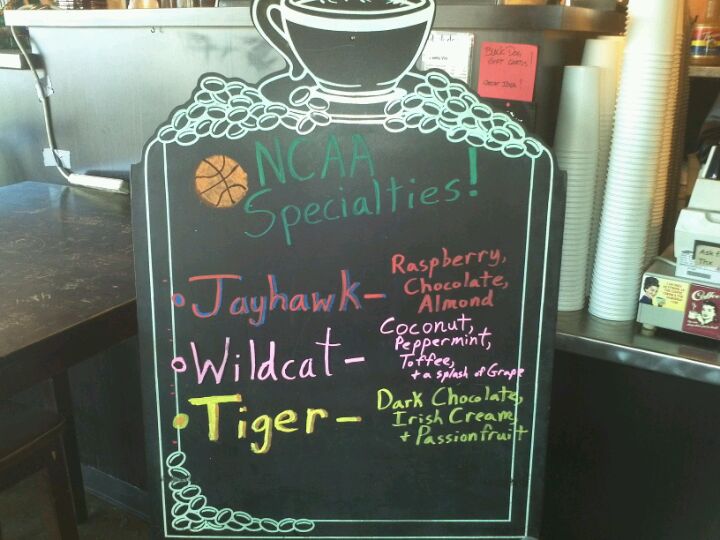 NCAA
Specialties!
• Jayhawk - Raspberry,
Chocolate,
Almond
• Wildcat - Coconut,
Peppermint,
Toffee,
+ a splash of Grape
• Tiger - Dark Chocolate,
Irish Cream,
+ Passionfruit
Black Dog
Gift Cards!
Ask f
Thx
Coffee